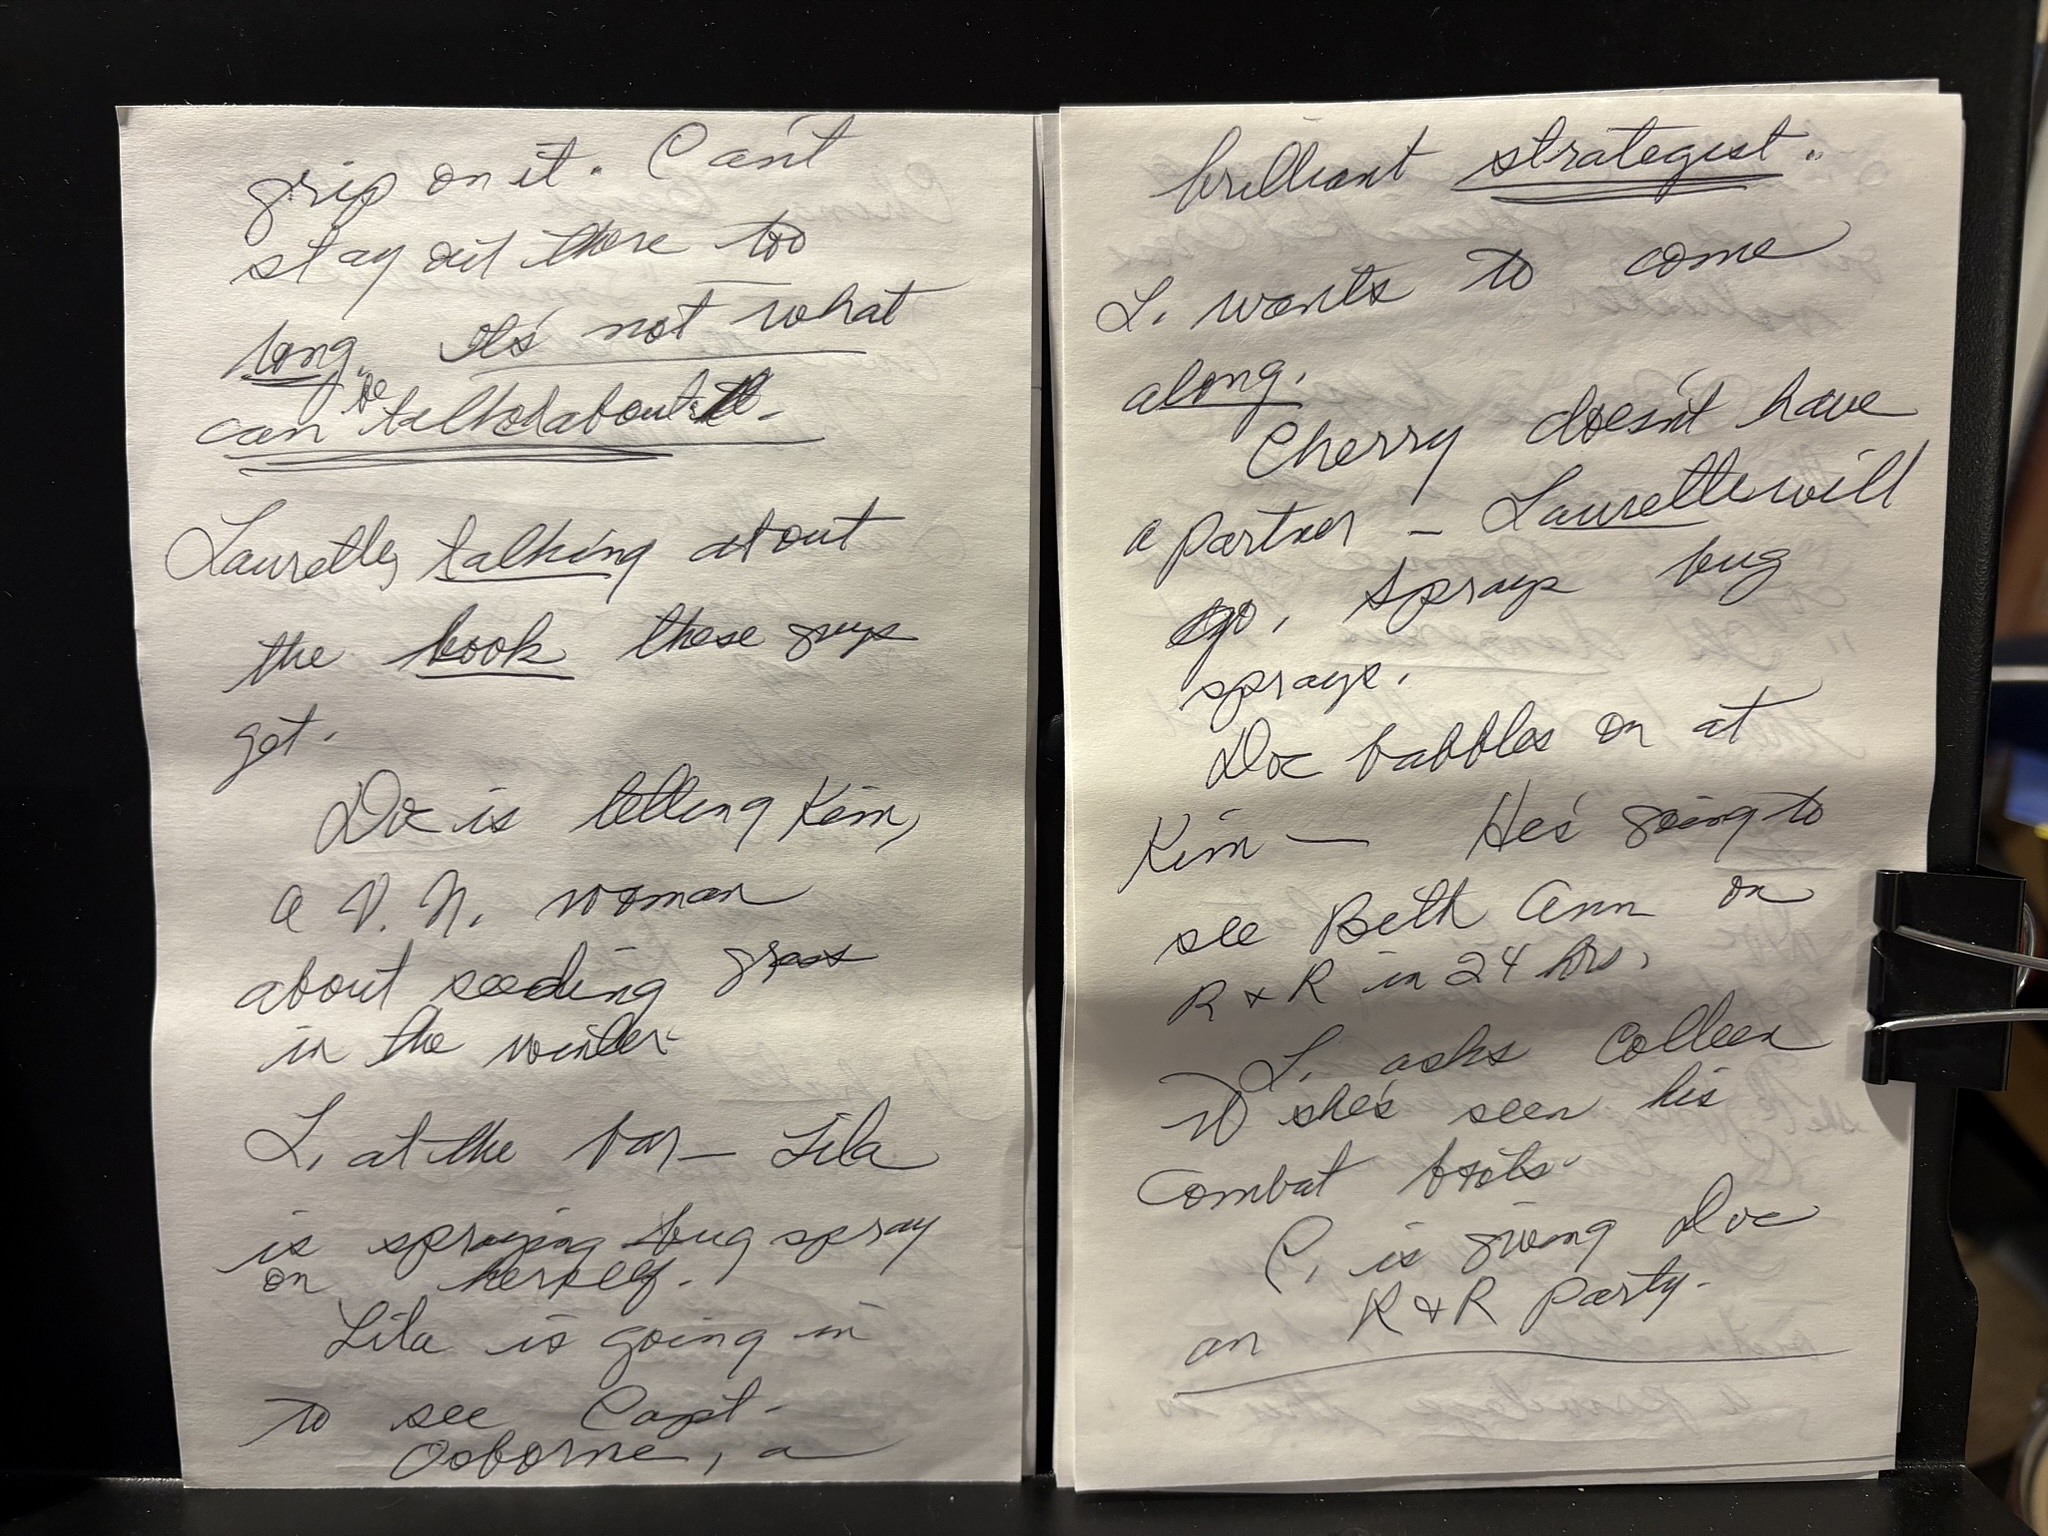 grip on it. Can't
stay out there too
long. It's not what
can be talked about.
Laurette, talking about
the book these guys
get.
Doc is telling Kim,
a V.N. woman
about seeding grass
in the winter.
L, at the bar — Lila
is spraying bug spray
on herself.
Lila is going in
to see Capt.
Osborne, a
brilliant strategist.
L. wants to come
along.
Cherry doesn't have
a partner — Laurette will
go, sprays bug
sprays.
Doc babbles on at
Kim — He's going to
see Beth Ann on
R & R in 24 hrs.
L. asks Colleen
if she's seen his
combat boots.
C. is giving Doc
an R & R Party.